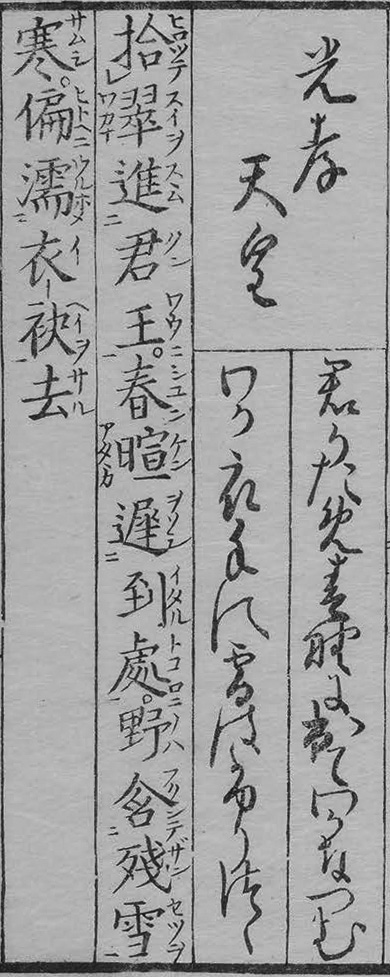 光孝
天皇
君うため春の野に出てわかなつむ
わか衣手に雪はふりつゝ
拾翠進君王。春暄遲到處。野含殘雪
寒。偏濡衣袂去